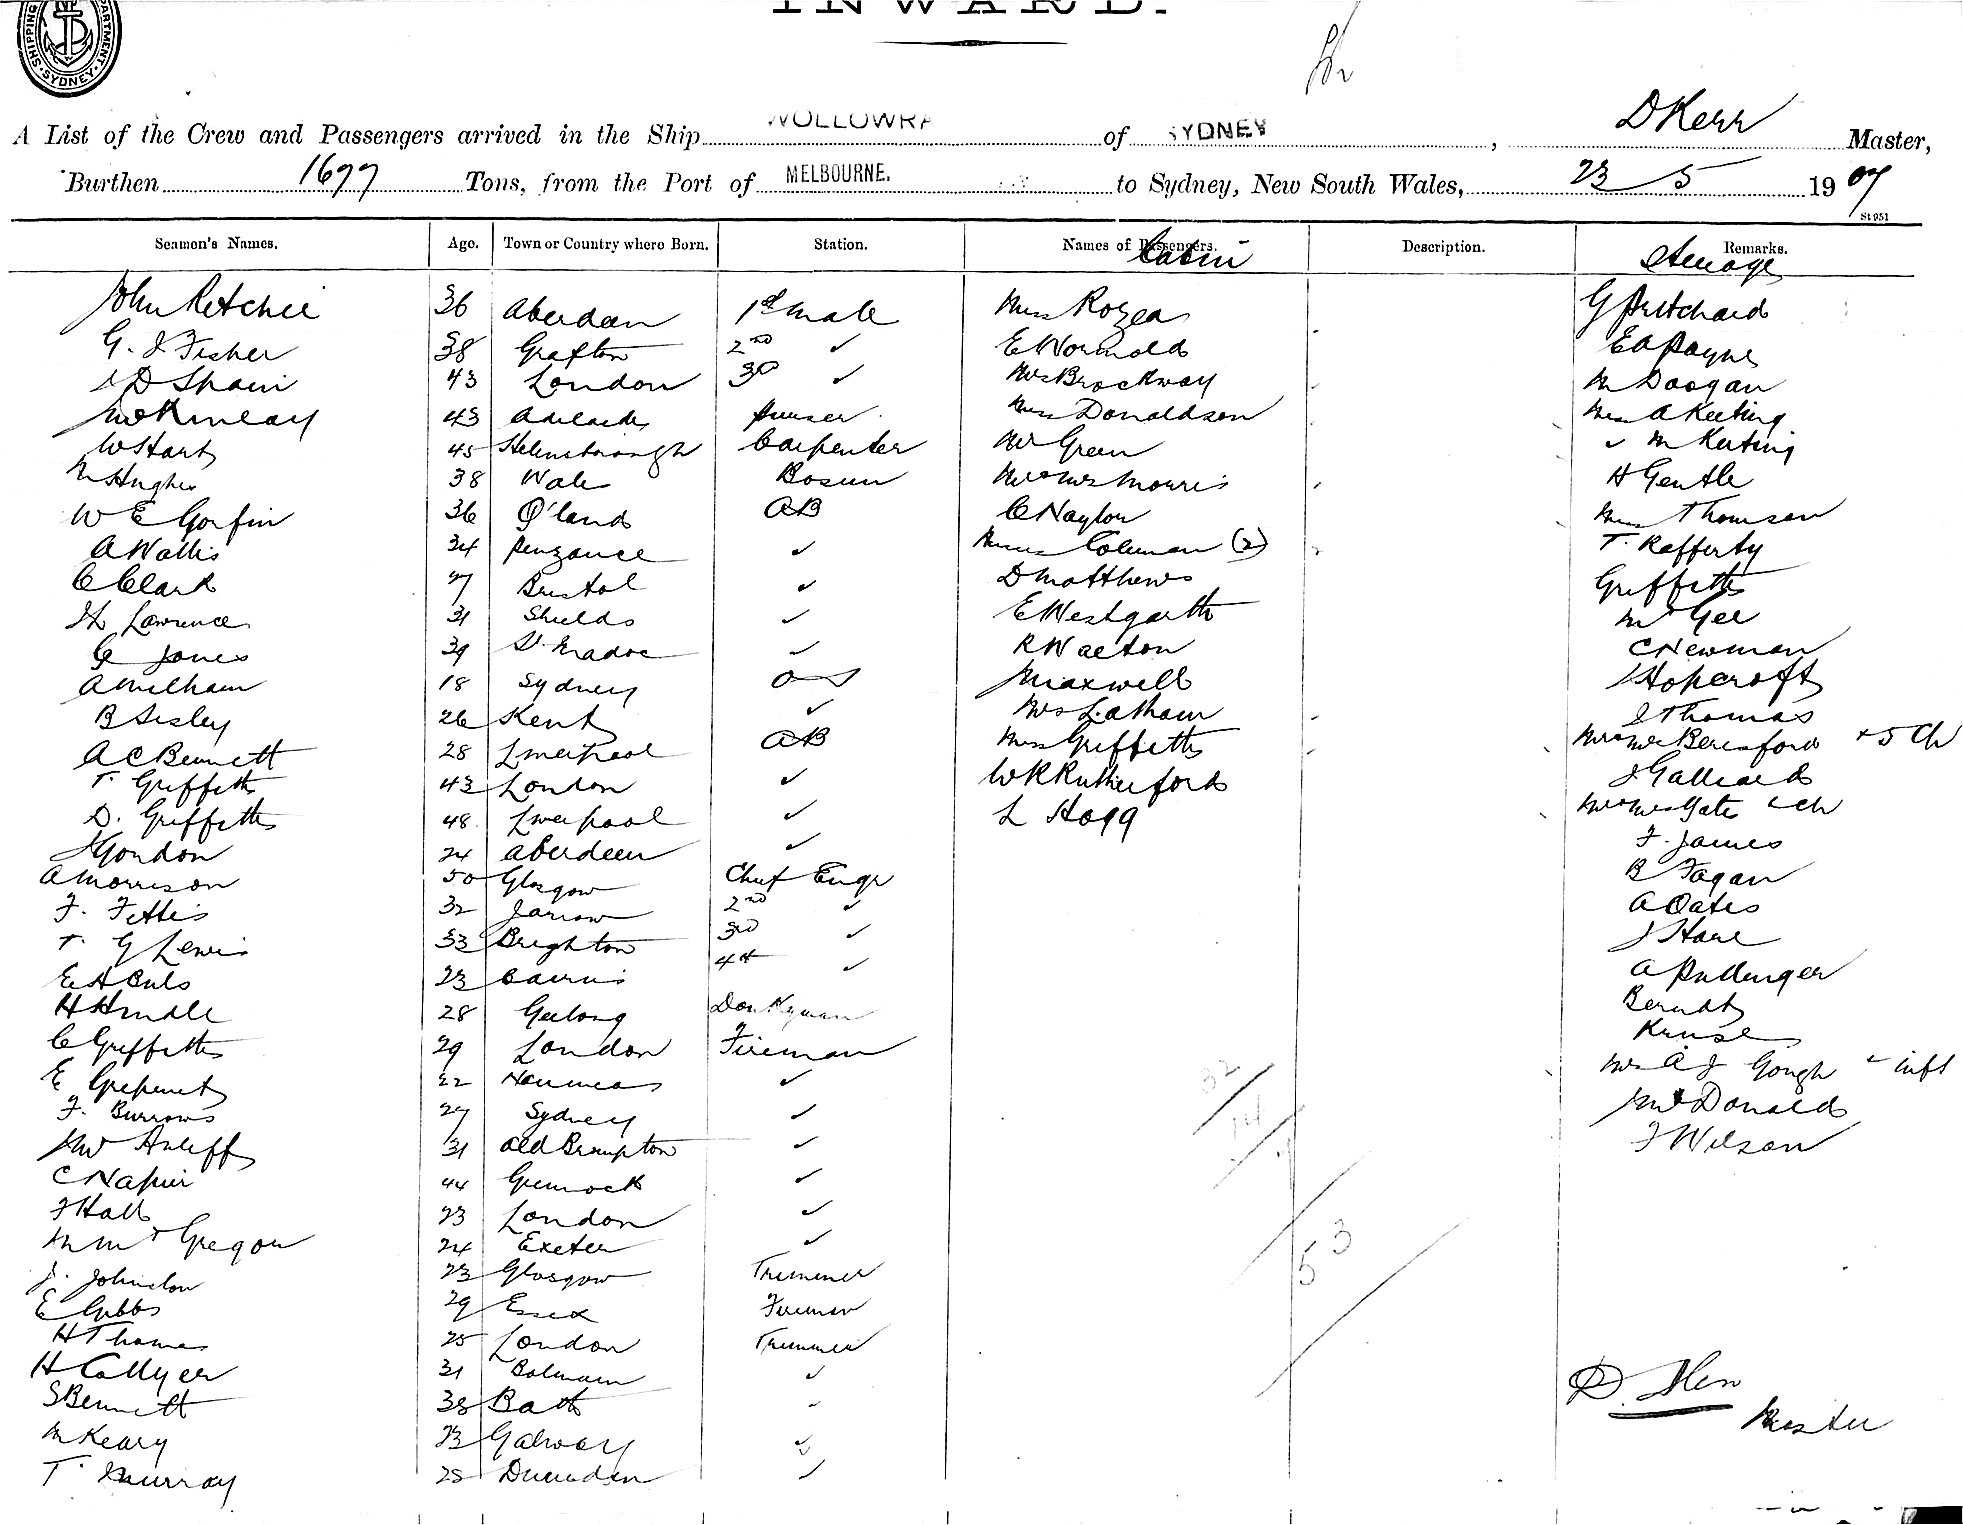 INWARD.
SHIPPING DEPARTMENT. SYDNEY
A List of the Crew and Passengers arrived in the Ship WOLLOWRA of SYDNEY, D Kerr Master,
Burthen 1677 Tons, from the Port of MELBOURNE. to Sydney, New South Wales, 23 5 1907
St 951
Seamen's Names. Age. Town or Country where Born. Station. Names of Passengers. Description. Remarks.
Cabin Steerage
John Ritchie 36 Aberdeen 1st mate Miss Rozea G Pritchard
G. J Fisher 38 Grafton 2nd ✓ E Wormald E A Payne
D Spain 43 London 3d ✓ Mrs Brockway M Doogan
McKinlay 43 Adelaide Purser Miss Donaldson Miss A Keeting
W Hart 45 Carpenter Mr Green M Keeting
Hughes 38 Wales Bosun Mr & Mrs Morris H Gentle
W E Gorfin 36 Q'land AB C Naylor Miss Thomson
A Wallis 34 Penzance ✓ Misses Coleman (2) T. Rafferty
C Clark 27 Bristol ✓ D Matthews Griffiths
Lawrence 31 Shields ✓ E Westgarth McGee
G Jones 39 ✓ R W C Newman
A Milham 18 Sydney OS Maxwell J Hopcroft
B Sisley 26 Kent ✓ Mrs Latham J Thomas
A C Bennett 28 Liverpool AB Miss Griffiths Mr & Mrs Beresford + 5 Ch
T. Griffiths 43 London ✓ W R Rutherford J Galliard
D. Griffiths 48 Liverpool ✓ L Hogg Mr & Mrs Gate & Ch
J Gordon 24 Aberdeen ✓ F. James
A Morrison 50 Glasgow Chief Engr B Fagan
F. Fettis 32 Jarrow 2nd ✓ A Oates
T. G Lewis 33 Brighton 3rd ✓ J Hare
E H 23 Cairns 4th ✓ A Pullenger
H Hindle 28 Geelong Donkeyman Berndt
C Griffiths 29 London Fireman Kruse
E 22 Noumea ✓ Mrs A J Gough & inft
F. Burrows 27 Sydney ✓ McDonald
31 Old Brompton ✓ J Wilson
C Napier 44 Greenock ✓
J Hall 23 London ✓
M McGregor 24 Exeter ✓
J. Johnston 23 Glasgow Trimmer
E Gibbs 29 Essex Fireman
H Thomas 25 London Trimmer
H Collyer 31 Balmain ✓
S Bennett 38 Bath
M Keary 23 Galway ✓
T. Murray 28 Dunedin ✓
32
53
D. Kerr
Master